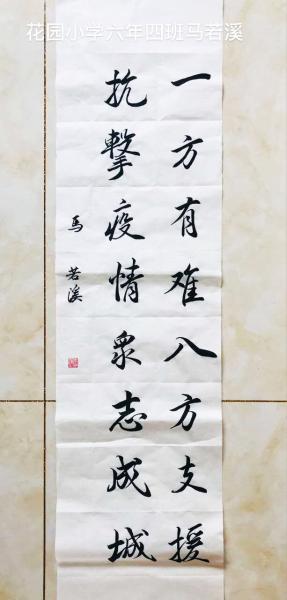 花园小学六年四班马若溪
一方有难八方支援
抗擊疫情眾志成城
马若溪